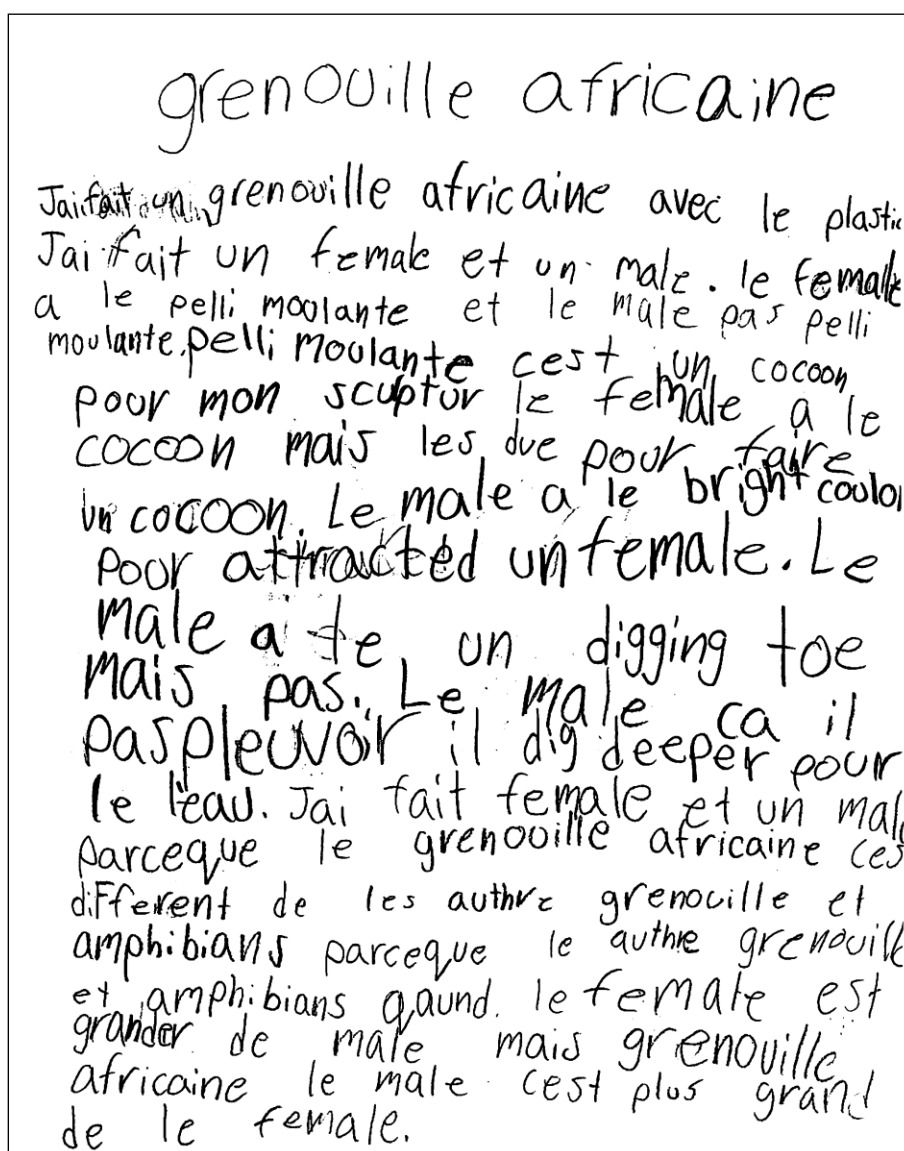 grenouille africaine
Jai fait un grenouille africaine avec le plastic
Jai fait un female et un male. le female
a le pelli moolante et le male pas pelli
moulante. pelli moulante cest un cocoon
pour mon sculptur le female a le
cocoon mais les due pour faire
un cocoon. Le male a le bright coulo
pour attracted un female. Le
male a te un digging toe
mais pas. Le male ca il
pas pleuvoir il dig deeper pour
le l'eau. Jai fait female et un male
parceque le grenouille africaine ces
different de les authre grenouille et
amphibians parceque le authre grenouille
et amphibians qaund. le female est
grander de male mais grenouille
africaine le male cest plus grand
de le female.